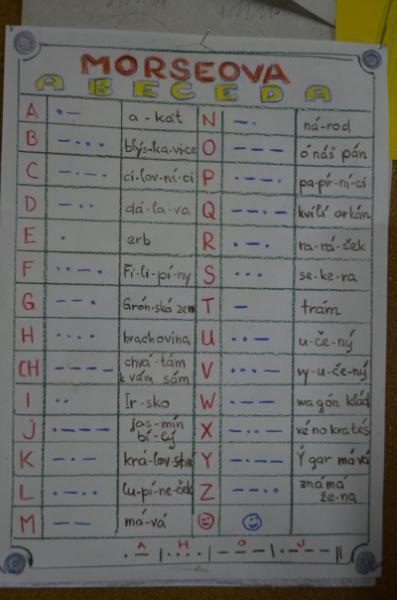 MORSEOVA
ABECEDA
A •– a-kát N –• ná-rod
B –••• blýs-ka-vi-ce O ––– ó náš pán
C –•–• cí-lov-ní-ci P •––• pa-pír-ní-ci
D –•• dá-la-va Q ––•– kvílí orkán
E • erb R •–• ra-rá-šek
F ••–• Fi-lí-pí-ny S ••• se-ke-ra
G ––• Grón-ská zem T – trám
H •••• hrachovina U ••– u-če-ný
CH –––– chvá-tám k vám sám V •••– vy-u-če-ný
I •• Ir-sko W •–– wa gón klád
J •––– jas-mín bí-lý X –••– xé no kratés
K –•– krá-lov-ství Y –•–– Ý gar mává
L •–•• lu-pí-ne-ček Z ––•• známá že-na
M –– má-vá
A H O J
•–|••••|–––|•–––||